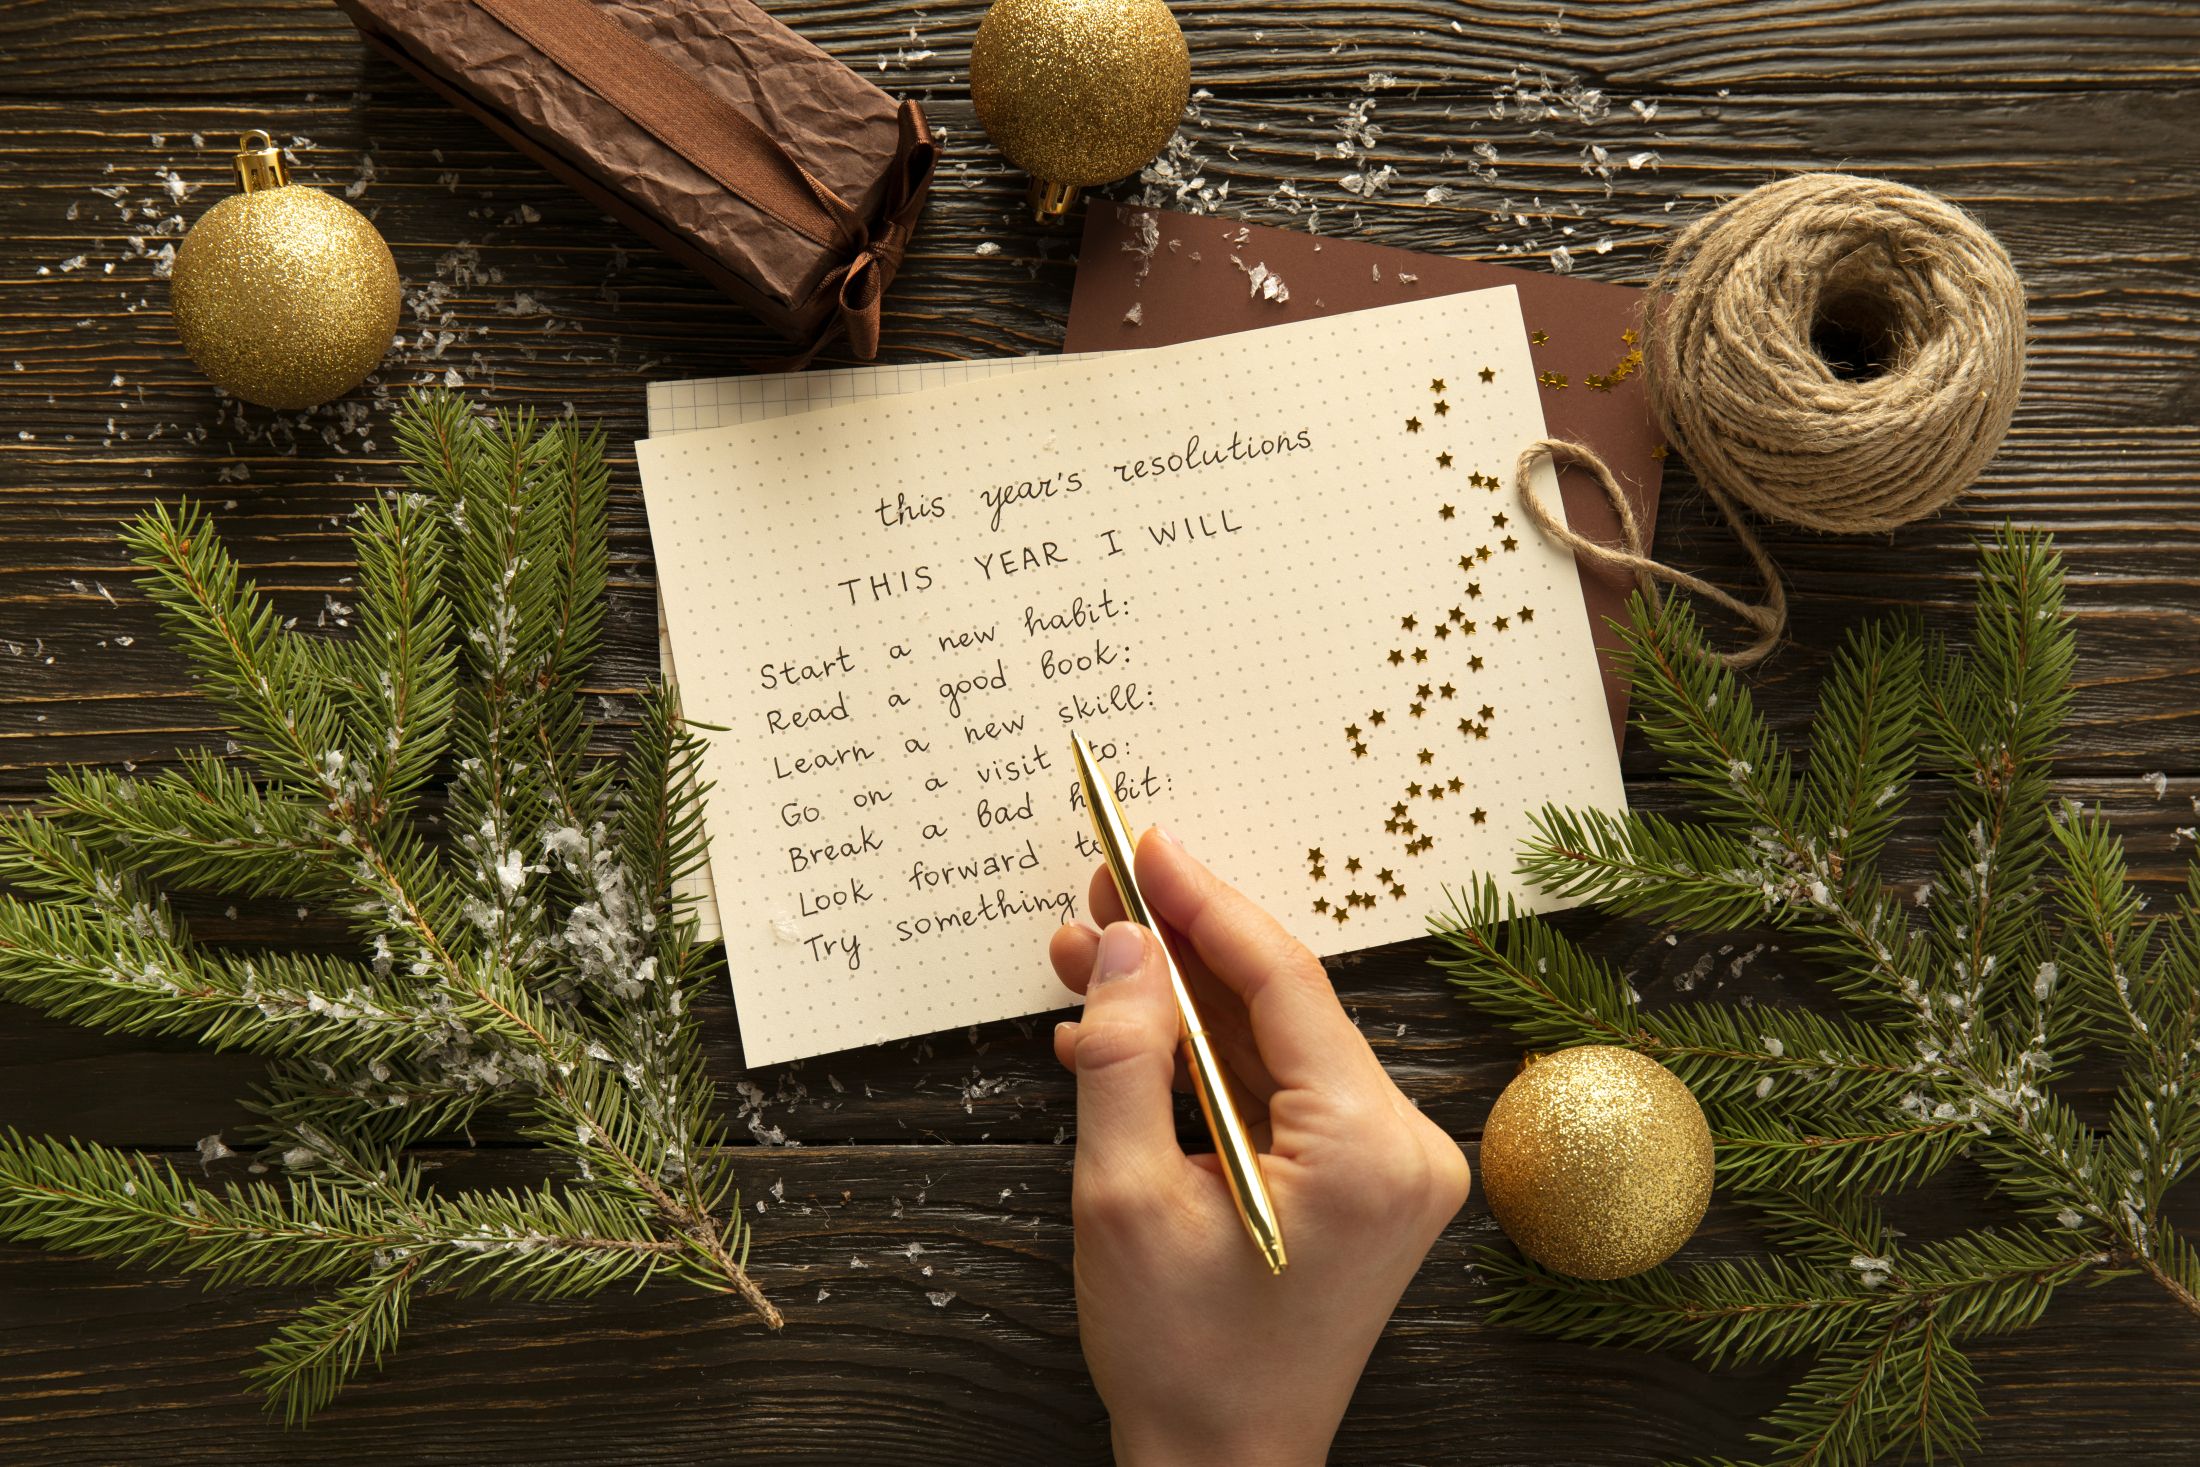 this year's resolutions
THIS YEAR I WILL
Start a new habit:
Read a good book:
Learn a new skill:
Go on a visit to:
Break a bad habit:
Look forward to
Try something